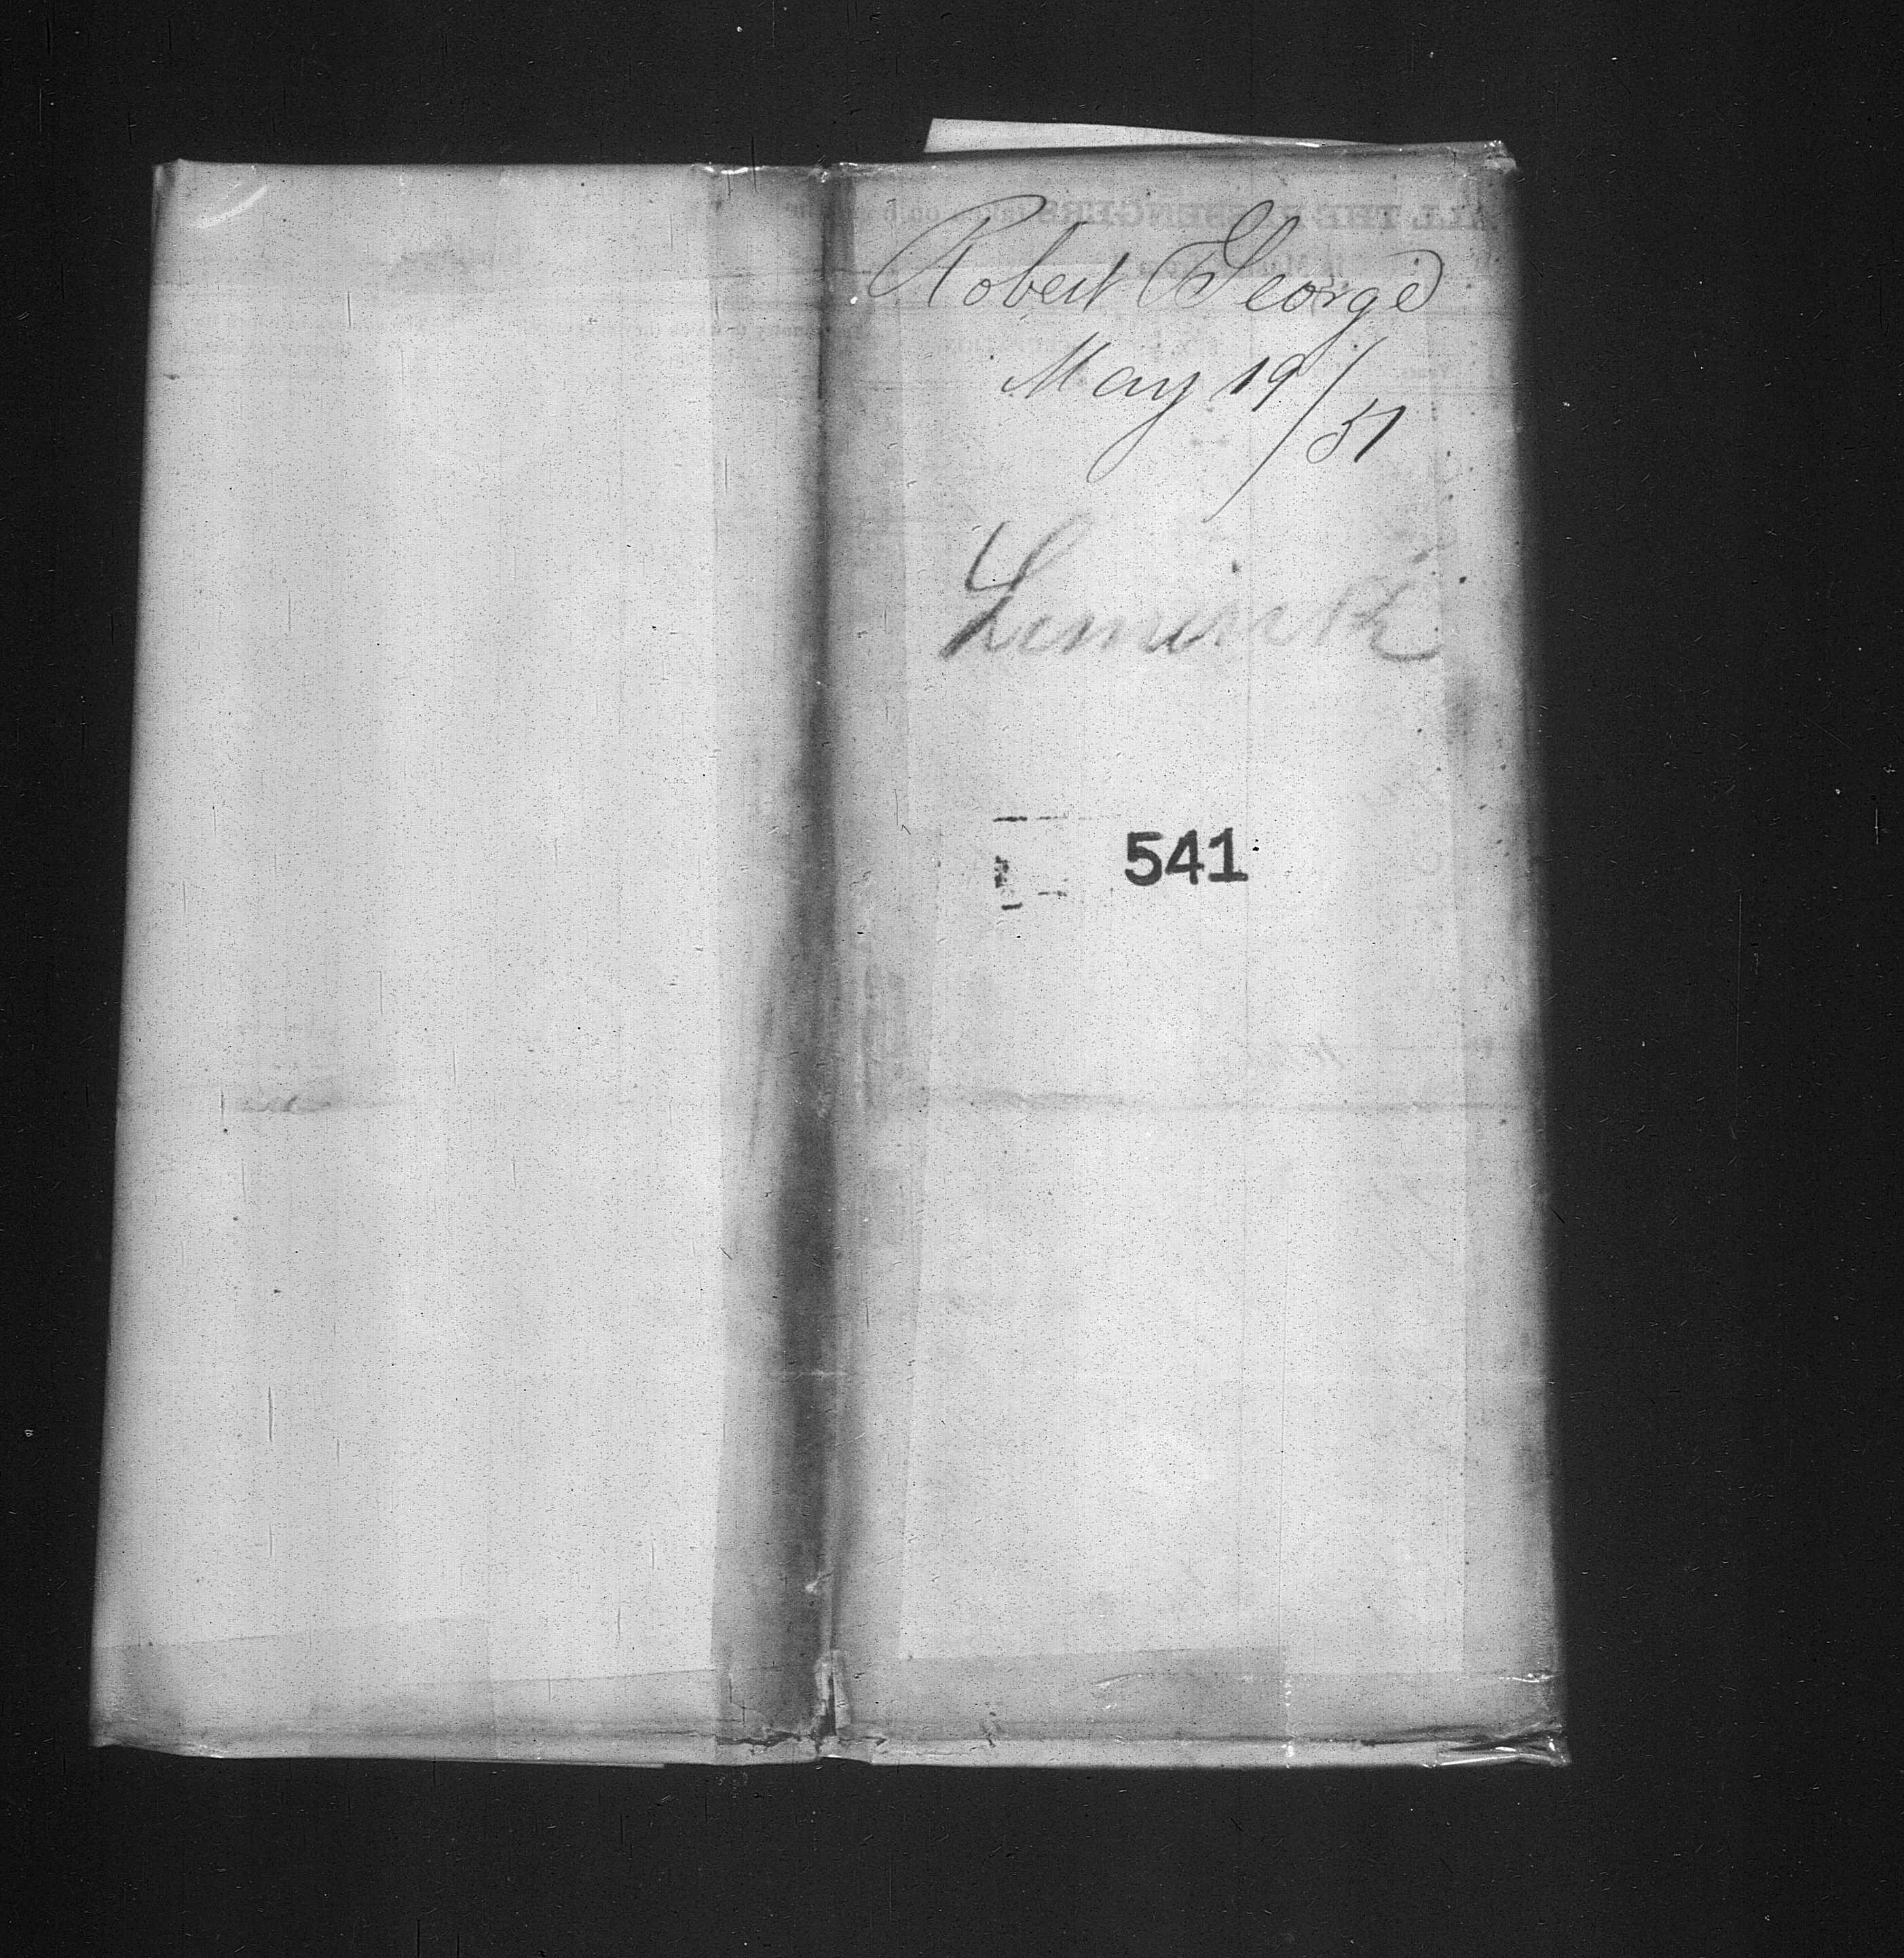 Robert George
May 19/51
Limirick
541